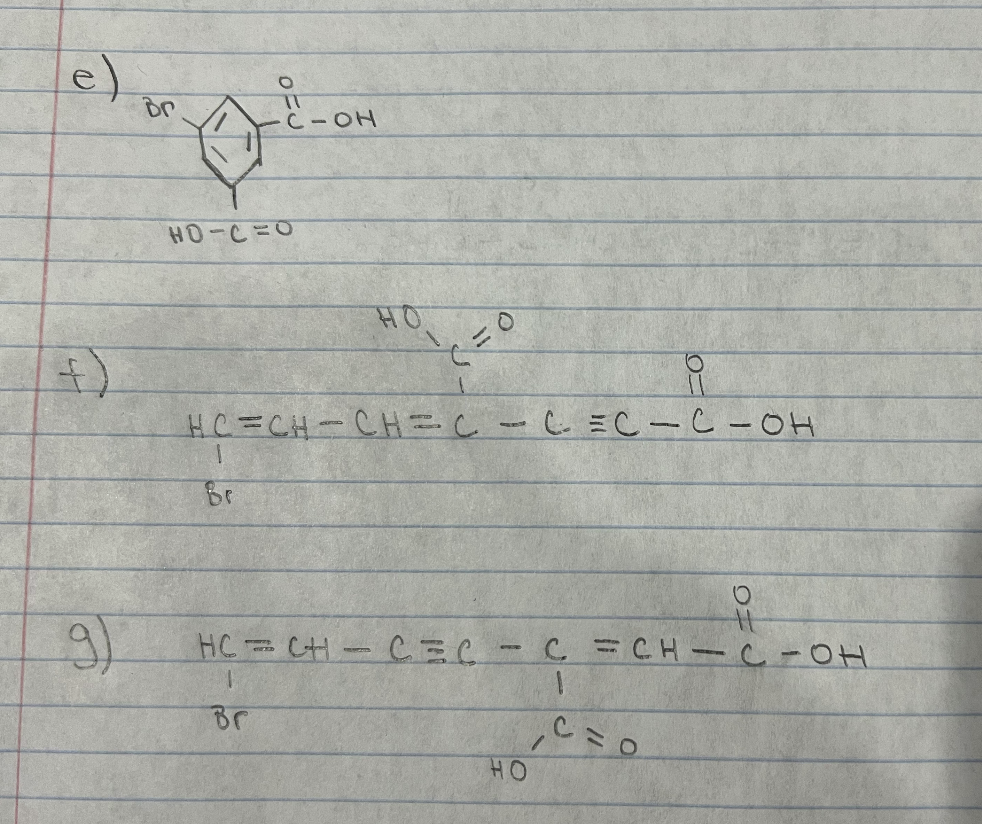 e)
O
Br C-OH
HO-C=O
HO O
C
f) O
HC=CH-CH=C-C≡C-C-OH
Br
O
g) HC=CH-C≡C-C=CH-C-OH
Br C=O
HO